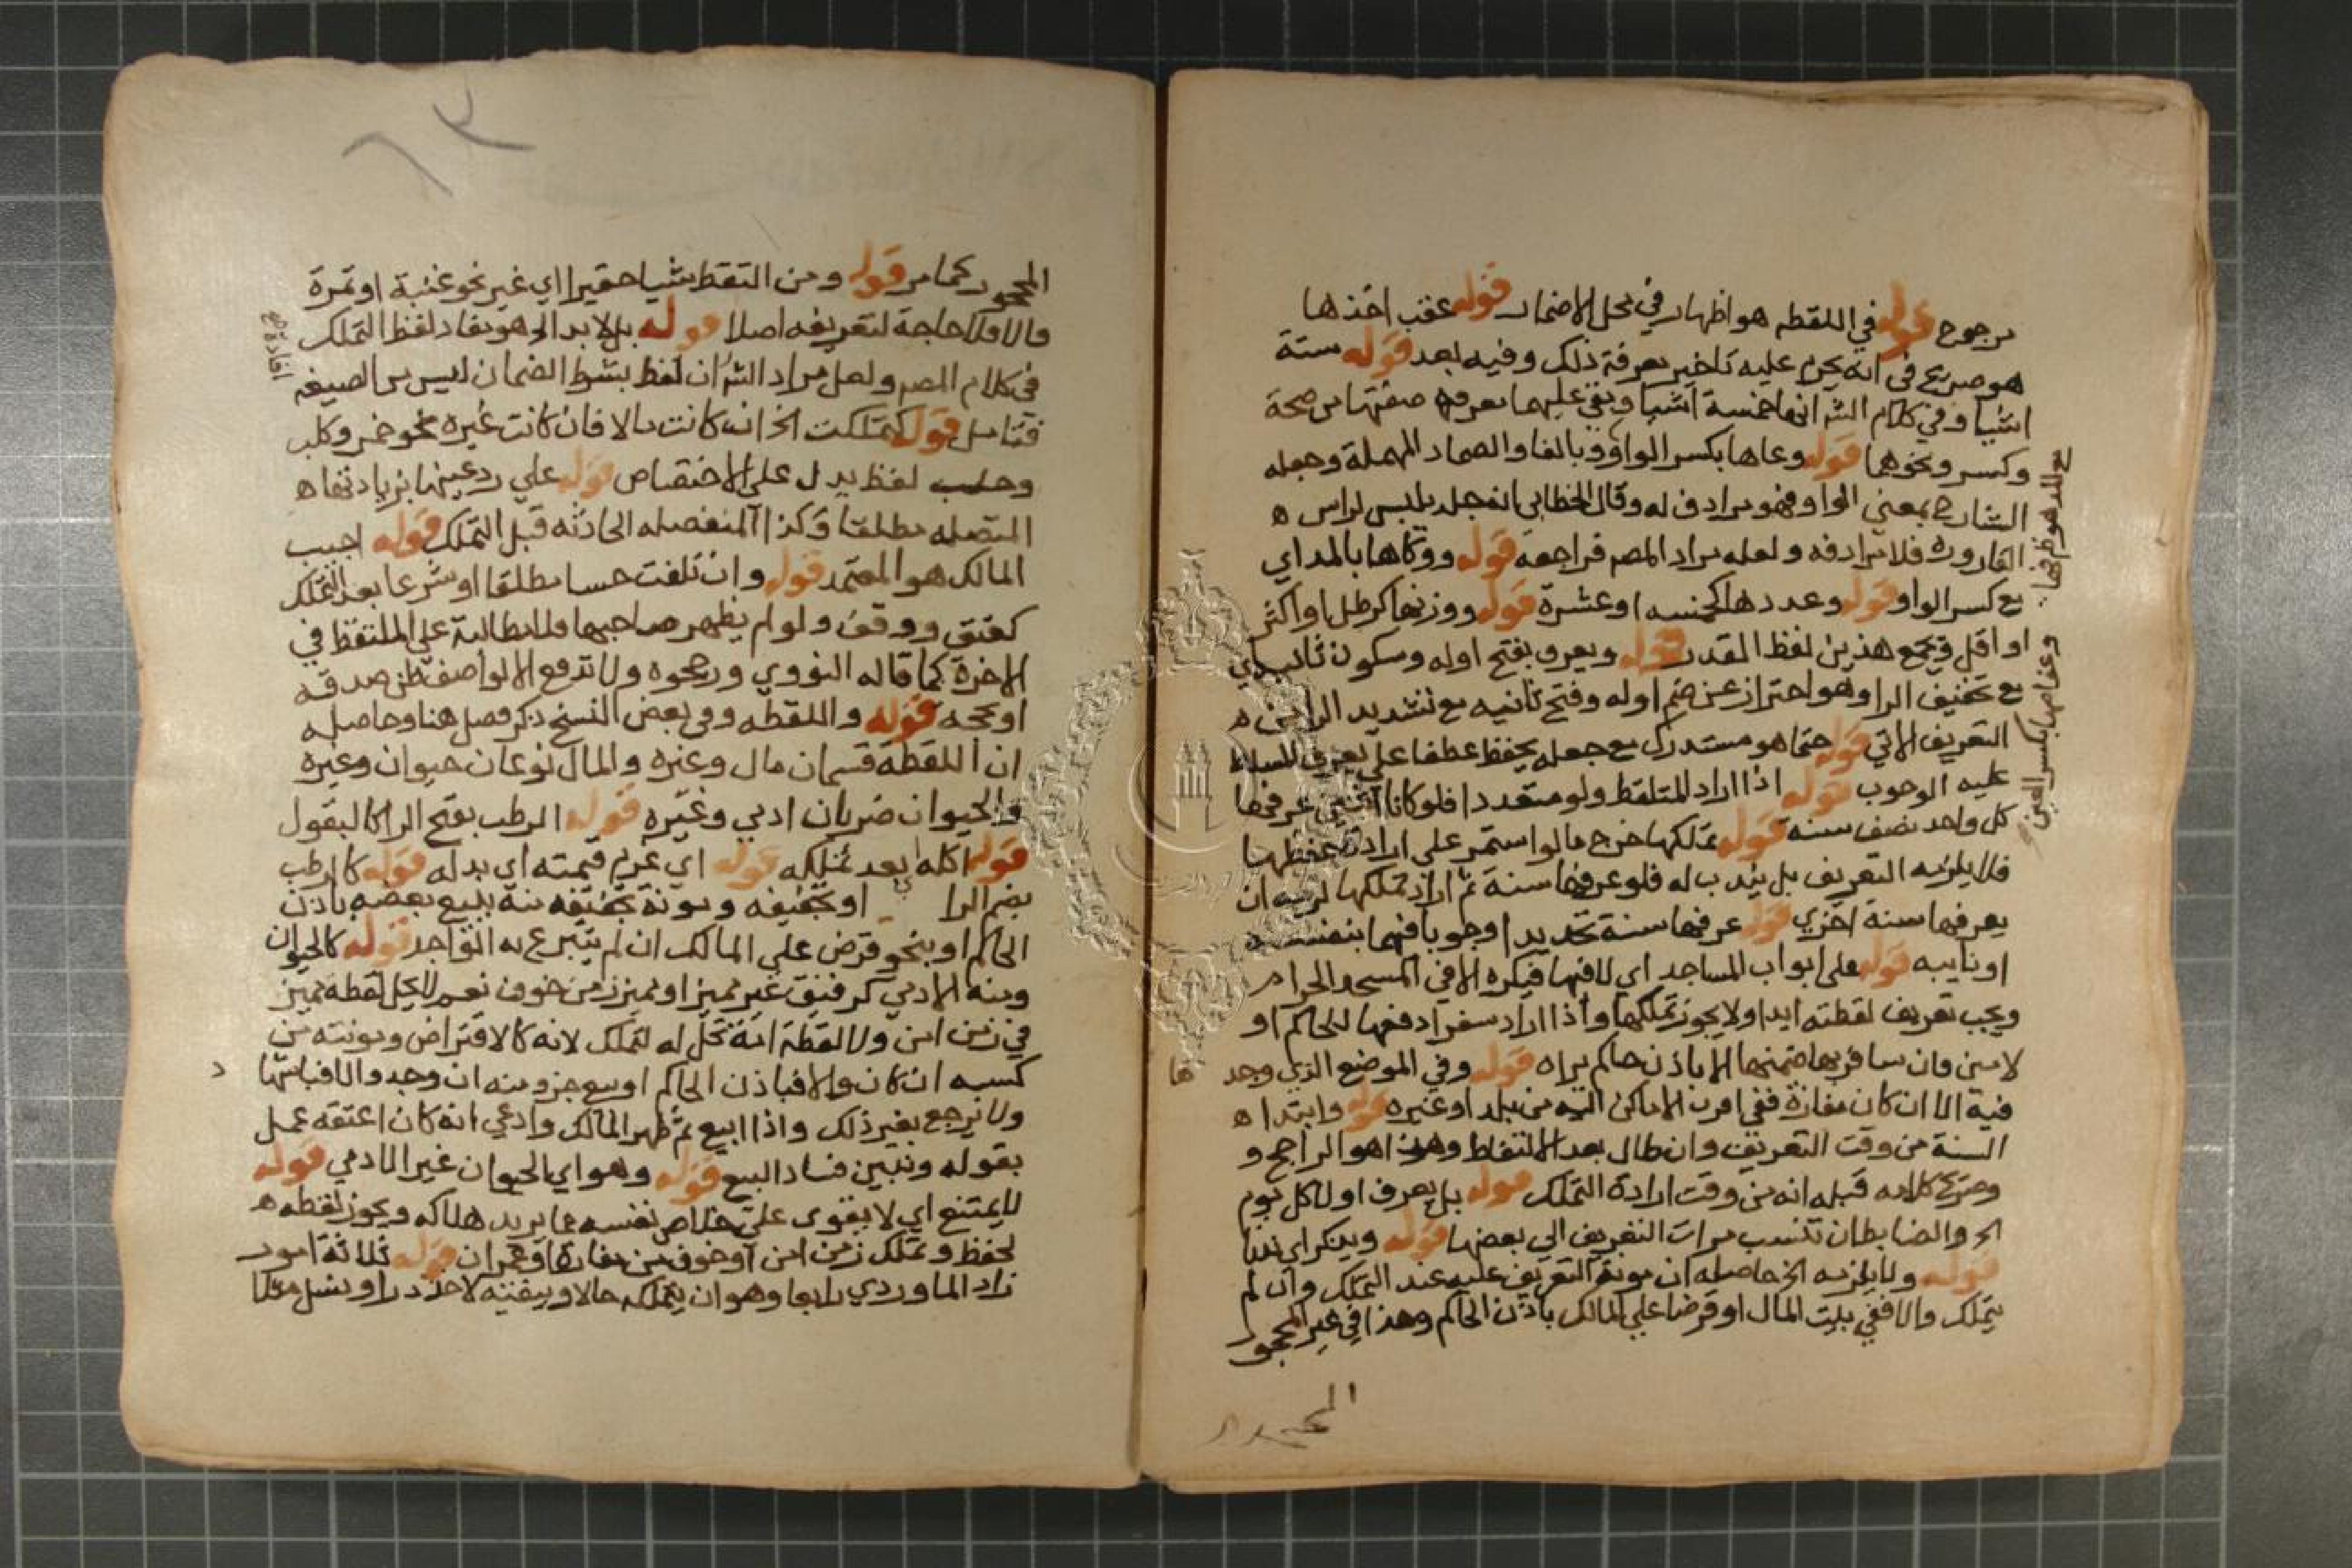 مرجوح قوله في اللقطه هو اظهار في محل الاضمار قوله عقب اخذها
هو صريح في انه يحرم عليه تاخير معرفة ذلك وفيه بعد قوله ستة
اشيا وفي كلام الش انها خمسة اشيا وبقي عليهما معرفة صفتها من صحة
وكسر ونحوهما قوله وعاها بكسر الواو وبالفا والصاد المهملة وجعله
الشارح بمعني الوا وفهو مرادف له وقال الخطابي انه جلد يلبس لراس ه
القارورة فلا ترادفه ولعله مراد المصر فراجعه قوله ووكاها بالمد اي
مع كسر الواو قوله وعددها كخمسه او عشرة قوله ووزنها كرطل او اكثر
او اقل ويجمع هذين لفظ القدر قوله ويعرف بفتح اوله وسكون ثانيه اي
مع تخفيف الرا وهو احتراز عن ضم اوله وفتح ثانيه مع تشديد الرا من ه
التعريف الاتي قوله حتما هو مستدرك مع جعله يحفظ عطفا علي يعرف
عليه الوجوب قوله اذا اراد الملتقط ولو متعددا فلو كانا اثنين عرفها
كل واحد نصف سنه قوله تملكها خرج ما لو استمر علي ارادة حفظها
فلا يلزمه التعريف بل يندب له فلو عرفها سنة ثم اراد تملكها لزمه ان
يعرفها سنة اخري قوله عرفها سنة تحديدا وجوبا فيهما بنفسه
او نايبه قوله علي ابواب المساجد اي لا فيها فيكره الا في المسجد الحرام
ويجب تعريف لقطته ابدا ولا يجوز تملكها واذا اراد سفرا دفعها للحاكم او
لامين وان سافر بها ضمنها الا باذن حاكم يراه قوله وفي الموضع الذي وجدها
فيه الا ان كان مفازة ففي اقرب الاماكن اليه من بلد او غيره قوله وابتدا ه
السنة من وقت التعريف وان طال بعد الالتقاط وهذا هو الراجح و
صريح كلامه قبله انه من وقت ارادة التملك قوله بل يعرف اولا كل يوم
الخ والضابط ان تنسب مرات التعريف الي بعضها قوله ويذكر اي ندبا
قوله ولا يلزمه الخ حاصله ان مونة التعريف عليه عند التملك وان لم
يتملك والا ففي بيت المال او قرضا علي المالك باذن الحاكم وهذا في غير المحجور
المحجور
مع المد هو ظرفها
وعفاصها بكسر العين
٦٣
المحجور كما مر قوله ومن التقط شيا حقيرا اي غير نحو عنبة او تمرة
والا فلا حاجة لتعريفه اصلا قوله بل لا بد الخ هو مفاد لفظ التملك
في كلام المصر ولعل مراد الش ان لفظ بشرط الضمان ليس من الصيغه
فتامل قوله كتملكت الخ ان كانت مالا فان كانت غيره نحو خمر وكلب
لفظ يدل علي الاختصاص قوله علي رد عينها بزيادتها ه
المتصله مطلقا وكذا المنفصله الحادثه قبل التملك قوله اجيب
المالك هو المعتمد قوله وان تلفت حسا مطلقا او شرعا بعد التملك
كعتق ووقف ولو لم يظهر صاحبها فلا مطالبة علي الملتقط في
الاخرة كما قاله النووي ورجحوه ولا تدفع الا لواصف ظن صدقه
او بحجه قوله واللقطه وفي بعض النسخ ذكر فصل هنا وحاصله
ان اللقطة قسمان مال وغيره والمال نوعان حيوان وغيره
والحيوان ضربان ادمي وغيره قوله الرطب بفتح الرا كالبقول
قوله اكله اي بعد تملكه قوله اي غرم قيمته اي بدله قوله كالرطب
بضم الرا او تجفيفه ومونة تجفيفه منه ببيع بعضه باذن
الحاكم او بنحو قرض علي المالك ان لم يتبرع به الواجد قوله كالحيوان
ومنه الادمي كرقيق غير مميز او مميز زمن خوف نعم لا يحل لقطه مميز
في زمن امن ولا لقطة امة تحل له لتملك لانه كالاقتراض ومونته من
كسبه ان كان والا فباذن الحاكم او بيع جزو منه ان وجد والا فباشهاد
ولا يرجع بغير ذلك واذا ابيع ثم ظهر المالك وادعي انه كان اعتقه عمل
بقوله وتبين فساد البيع قوله وهو اي الحيوان غير الادمي قوله
لا يمتنع اي لا يقوي علي خلاص نفسه مما يريد هلاكه ويجوز لقطه ه
لحفظ وتملك زمن امن او خوف من مفازة او عمران قوله ثلاثة امور
زاد الماوردي رابعا وهو ان يتملكه حالا ويبقيه لاخذ در او نسل مثلا